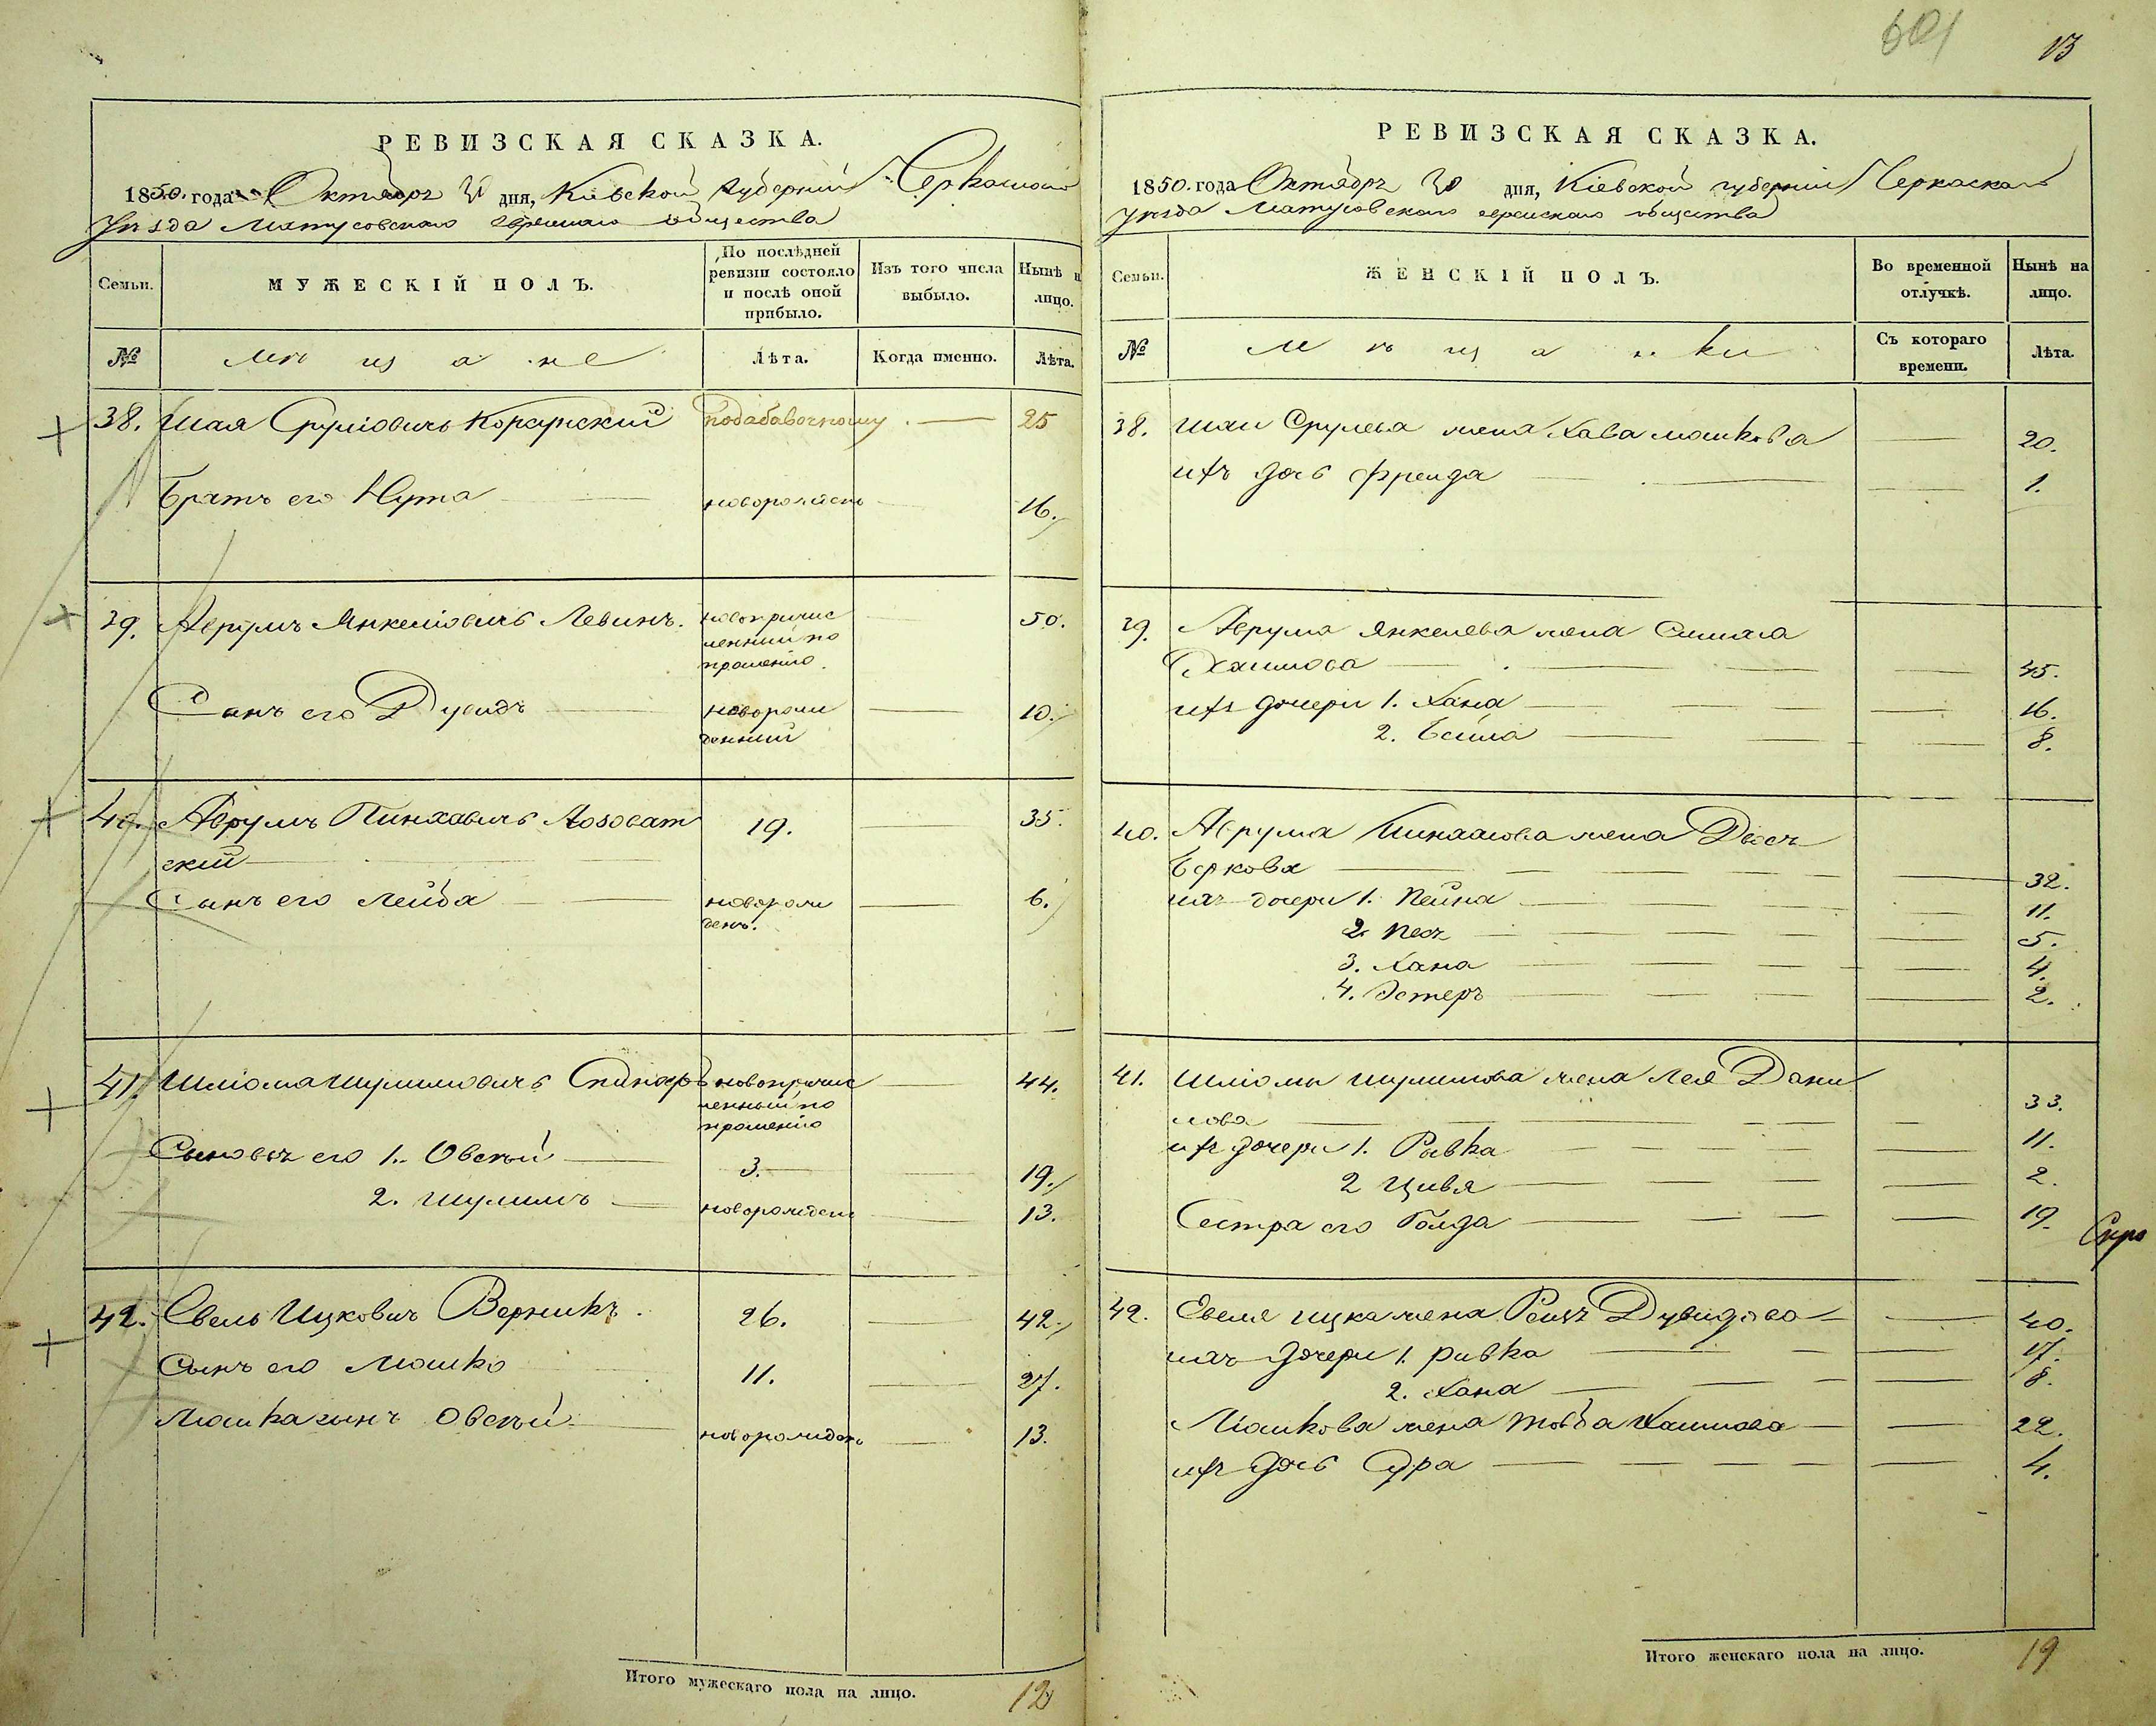 601
13
РЕВИЗСКАЯ СКАЗКА.
1850. года Октября 30 дня, Кіевской губерніи Черкаскаго
Уѣзда Матусовскаго еврейскаго общества
Семьи.
МУЖЕСКІЙ ПОЛЪ.
По послѣдней
ревизіи состояло
и послѣ оной
прибыло.
Изъ того числа
выбыло.
Нынѣ н
лицо.
№
мѣщане
Лѣта.
Когда именно.
Лѣта.
38. Шая Сруліовичъ Корсунскій 25
Братъ его Нута новорожденъ 16.
39. Аврумъ Янкеліовичъ Левинъ. новопричис 50.
ленный по
прошенію.
Сынъ его Дувидъ новорож 10.
денный
40. Аврумъ Пинхавичъ Лозоват 19. 35.
скій
Сынъ его Лейба новорож 6.
денъ.
41. Шліома Шулимовичъ новопричис 44.
ленный по
прошенію
Сыновья его 1. Овсѣй 3. 19.
2. Шулимъ новорожденъ 13.
42. Евель Ицковичъ Верникъ. 26. 42.
Сынъ его Мошко 11. 27.
Мошка сынъ Овсѣй новорожденъ 13.
Итого мужескаго пола на лицо. 12
РЕВИЗСКАЯ СКАЗКА.
1850. года Октября 30 дня, Кіевской губерніи Черкаскаго
уѣзда Матусовскаго еврейскаго общества
Семьи.
ЖЕНСКІЙ ПОЛЪ.
Во временной
отлучкѣ.
Нынѣ на
лицо.
№
мѣщанки
Съ котораго
времени.
Лѣта.
38. Шаи Срулева жена Хава Мошкова 20.
ихъ дочь Фрейда 1.
39. Аврума Янкелева жена
Хаимова 45.
ихъ дочери 1. Хана 16.
2. Бейла 8.
40. Аврума Пинхасова жена Двося
Беркова 32.
ихъ дочери 1. Пейна 11.
2. Песя 5.
3. Хана 4.
4. Эстеръ 2.
41. Шліомы Шулимова жена Лея Дани
лова 33.
ихъ дочери 1. Рывка 11.
2 Цивя 2.
Сестра его Голда 19.
42. Евеля Ицка жена Рейзя Дувидова 40.
ихъ дочери 1. Ривка 17.
2. Хана 8.
Мошкова жена Товба Хаимова 22.
ихъ дочь Сура 4.
Итого женскаго пола на лицо. 19